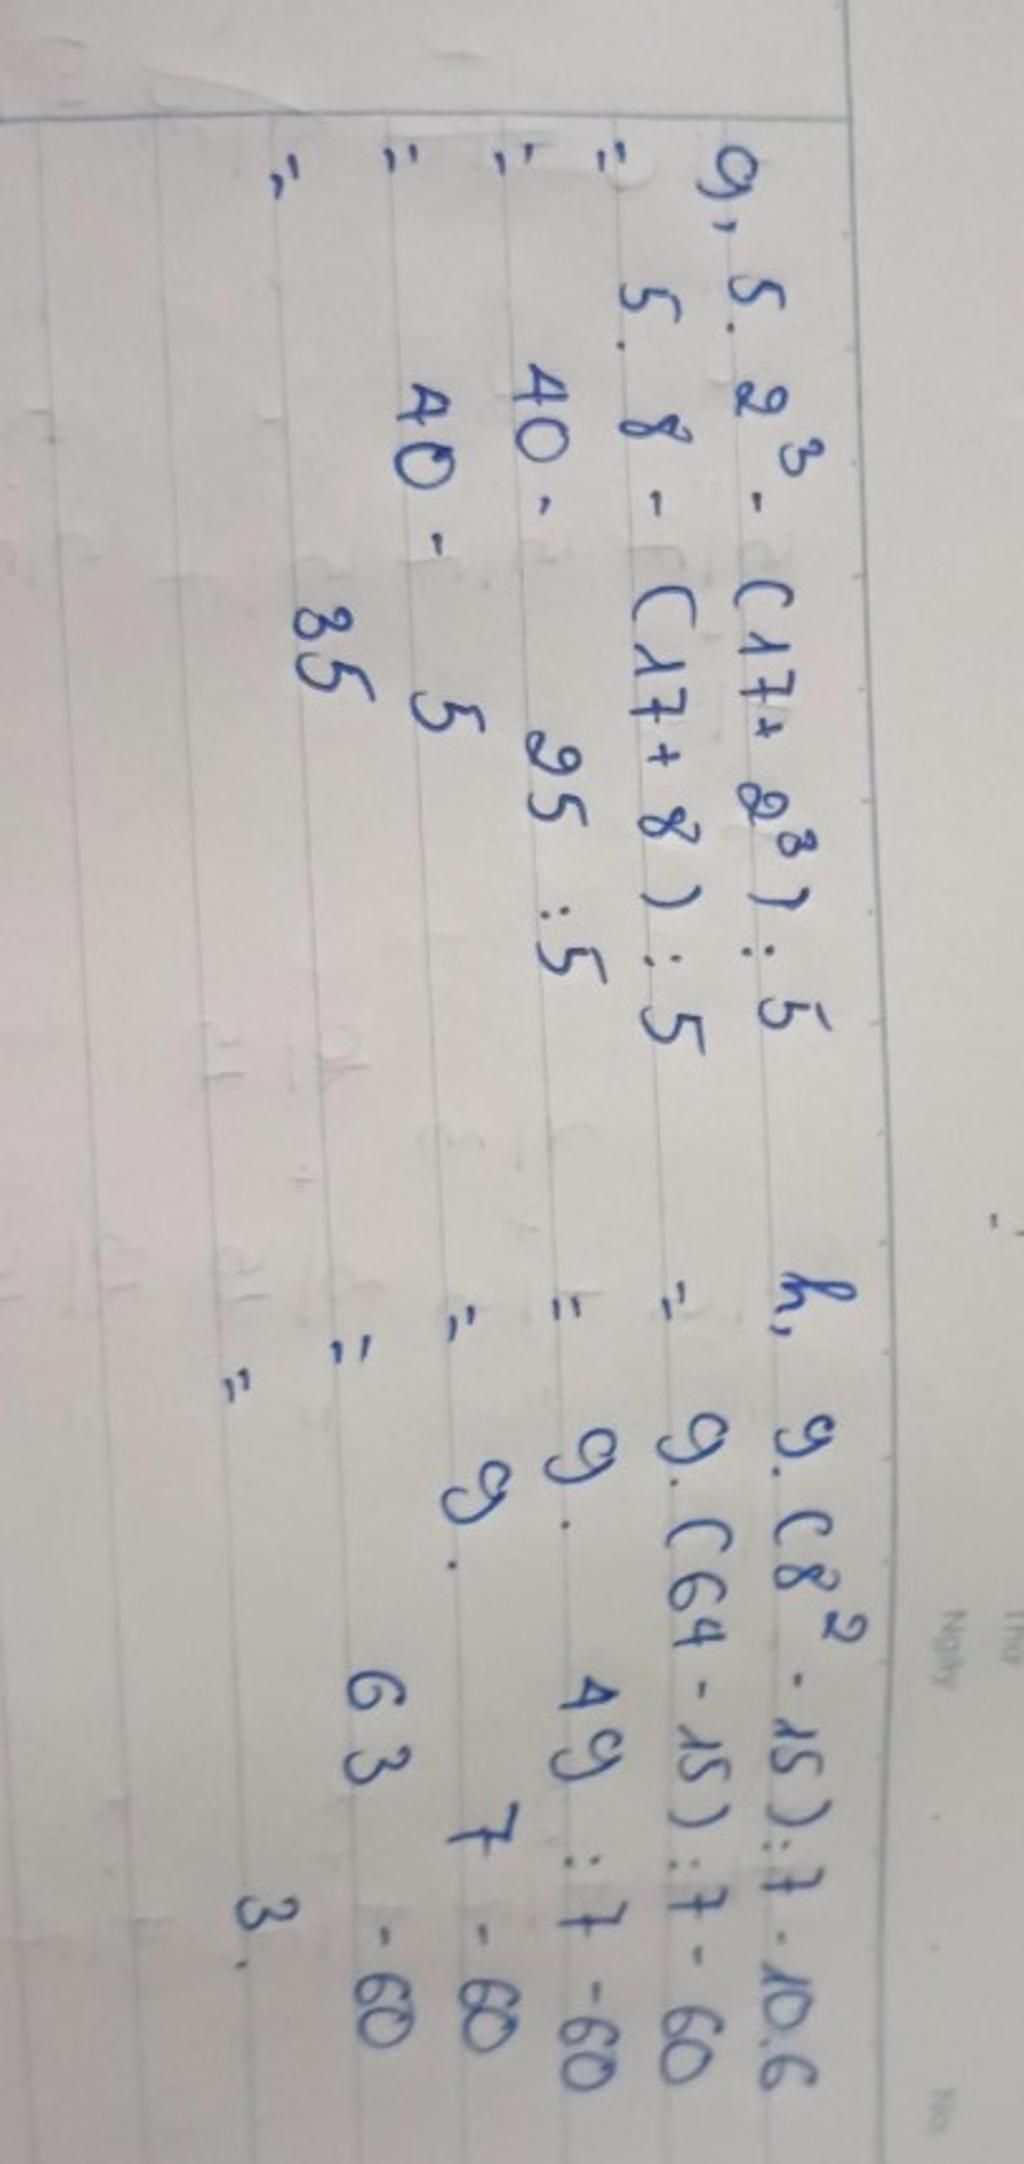 Thứ
Ngày
No.
g, 5. 2³ - (17+ 2³) : 5
= 5. 8 - (17+ 8) : 5
= 40 - 25 : 5
= 40 - 5
= 35
h, 9. (8² - 15) : 7 - 10.6
= 9. (64 - 15) : 7 - 60
= 9. 49 : 7 - 60
= 9. 7 - 60
= 63 - 60
= 3.